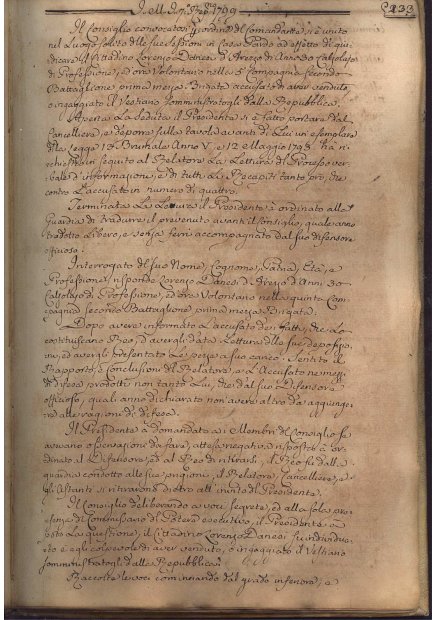 133
Il Consiglio convocato per ordine del Comandante, si è unito
nel Luogo solito delle sue Sessioni in Casa Pardo ad effetto di giu-
dicare il Cittadino Lorenzo Danesi d'Arezzo di Anni 30 Calzolajo
di Professione, ed ora Volontario nella 5 Compagnia Secondo
Battaglione prima mezza Brigata accusato di aver venduto,
o ingaggiato il Vestiario somministratogli dalla Repubblica.
Aperta La Seduta il Presidente si è fatto portare dal
Cancelliere, e deporre sulla tavola avanti di Lui un esemplare
della Legge 13 Brumale Anno V, e 12 Maggio 1793. Ha ri-
chiesto in seguito al Relatore La Lettura del Processo ver-
bale d'informazione, e di tutti i Recapiti tanto pro, che
contro L'accusato in numero di quattro.
Terminata La Lettura il Presidente à ordinato alla
Guardia di tradurre il prevenuto avanti il Consiglio, quale
trodotto Libero, e senza ferri accompagnato dal suo difensore
officioso.
Interrogato del suo Nome, Cognome, Patria, Età, e
Professione, rispondo Lorenzo Danesi di Arezzo d'Anni 30
Calzolajo di Professione, ed ora Volontario nella quinta Com-
pagnia secondo Battaglione, prima mezza Brigata.
Dopo avere informato L'accusato dei fatti, che Lo
costituiscano Reo, d'avergli data Lettura delle sue deposizio-
ni, ed avergli presentato Le pezze a suo carico. Sentito il
Rapporto, e Conclusioni del Relatore, e L'Accusato ne mez-
zi di difesa prodotti non tanto Lui, che dal suo Difensore
officioso, quali anno dichiarato non avere altro da aggiunge-
re alle ragioni di difesa.
Il Presidente à domandato a i Membri del Consiglio se
avevano osservazioni da fare, attesa negativa risposta à or-
dinato il Difensore, ed al Reo di ritirarsi, il Reo fu dalla
guardia condotto alle sue prigioni, il Relatore, Cancelliere, e
gli Astanti si ritirarono dietro all'invito del Presidente.
Il Consiglio deliberando a voci segrete, ed alla sola pre-
senza del Commissario del Potere esecutivo, il Presidente à
posto La questione, il Cittadino Lorenzo Danesi
è egli colpevole di aver venduto, o ingaggiato il Vestiario
somministratogli dalla Repubblica?
Raccolte le voci cominciando dal grado inferiore, e